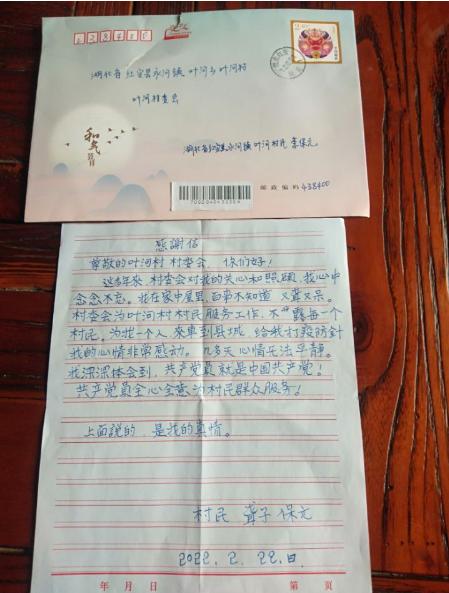 湖北省红安县永河镇叶河乡叶河村
叶河村委会
和气致祥
湖北省红安县永河镇叶河村民
邮政编码 438400
感謝信
尊敬的叶河村 村委会，你们好！
这些年来 村委会对我的关心和照顾 我心中
念念不忘。我在家中屋里 百事不知道 又聋又呆。
村委会为叶河村村民服务工作，不露每一个
村民。为我一个人 来車到县城，给我打疫防針
我的心情非常感动。九多天心情无法平静。
我深深体会到，共产党員就是中国共产党！
共产党員全心全意为村民群众服务！
上面說的 是我的真情。
村民 聋子 保元
2022.2.22.日.
年 月 日
第 页